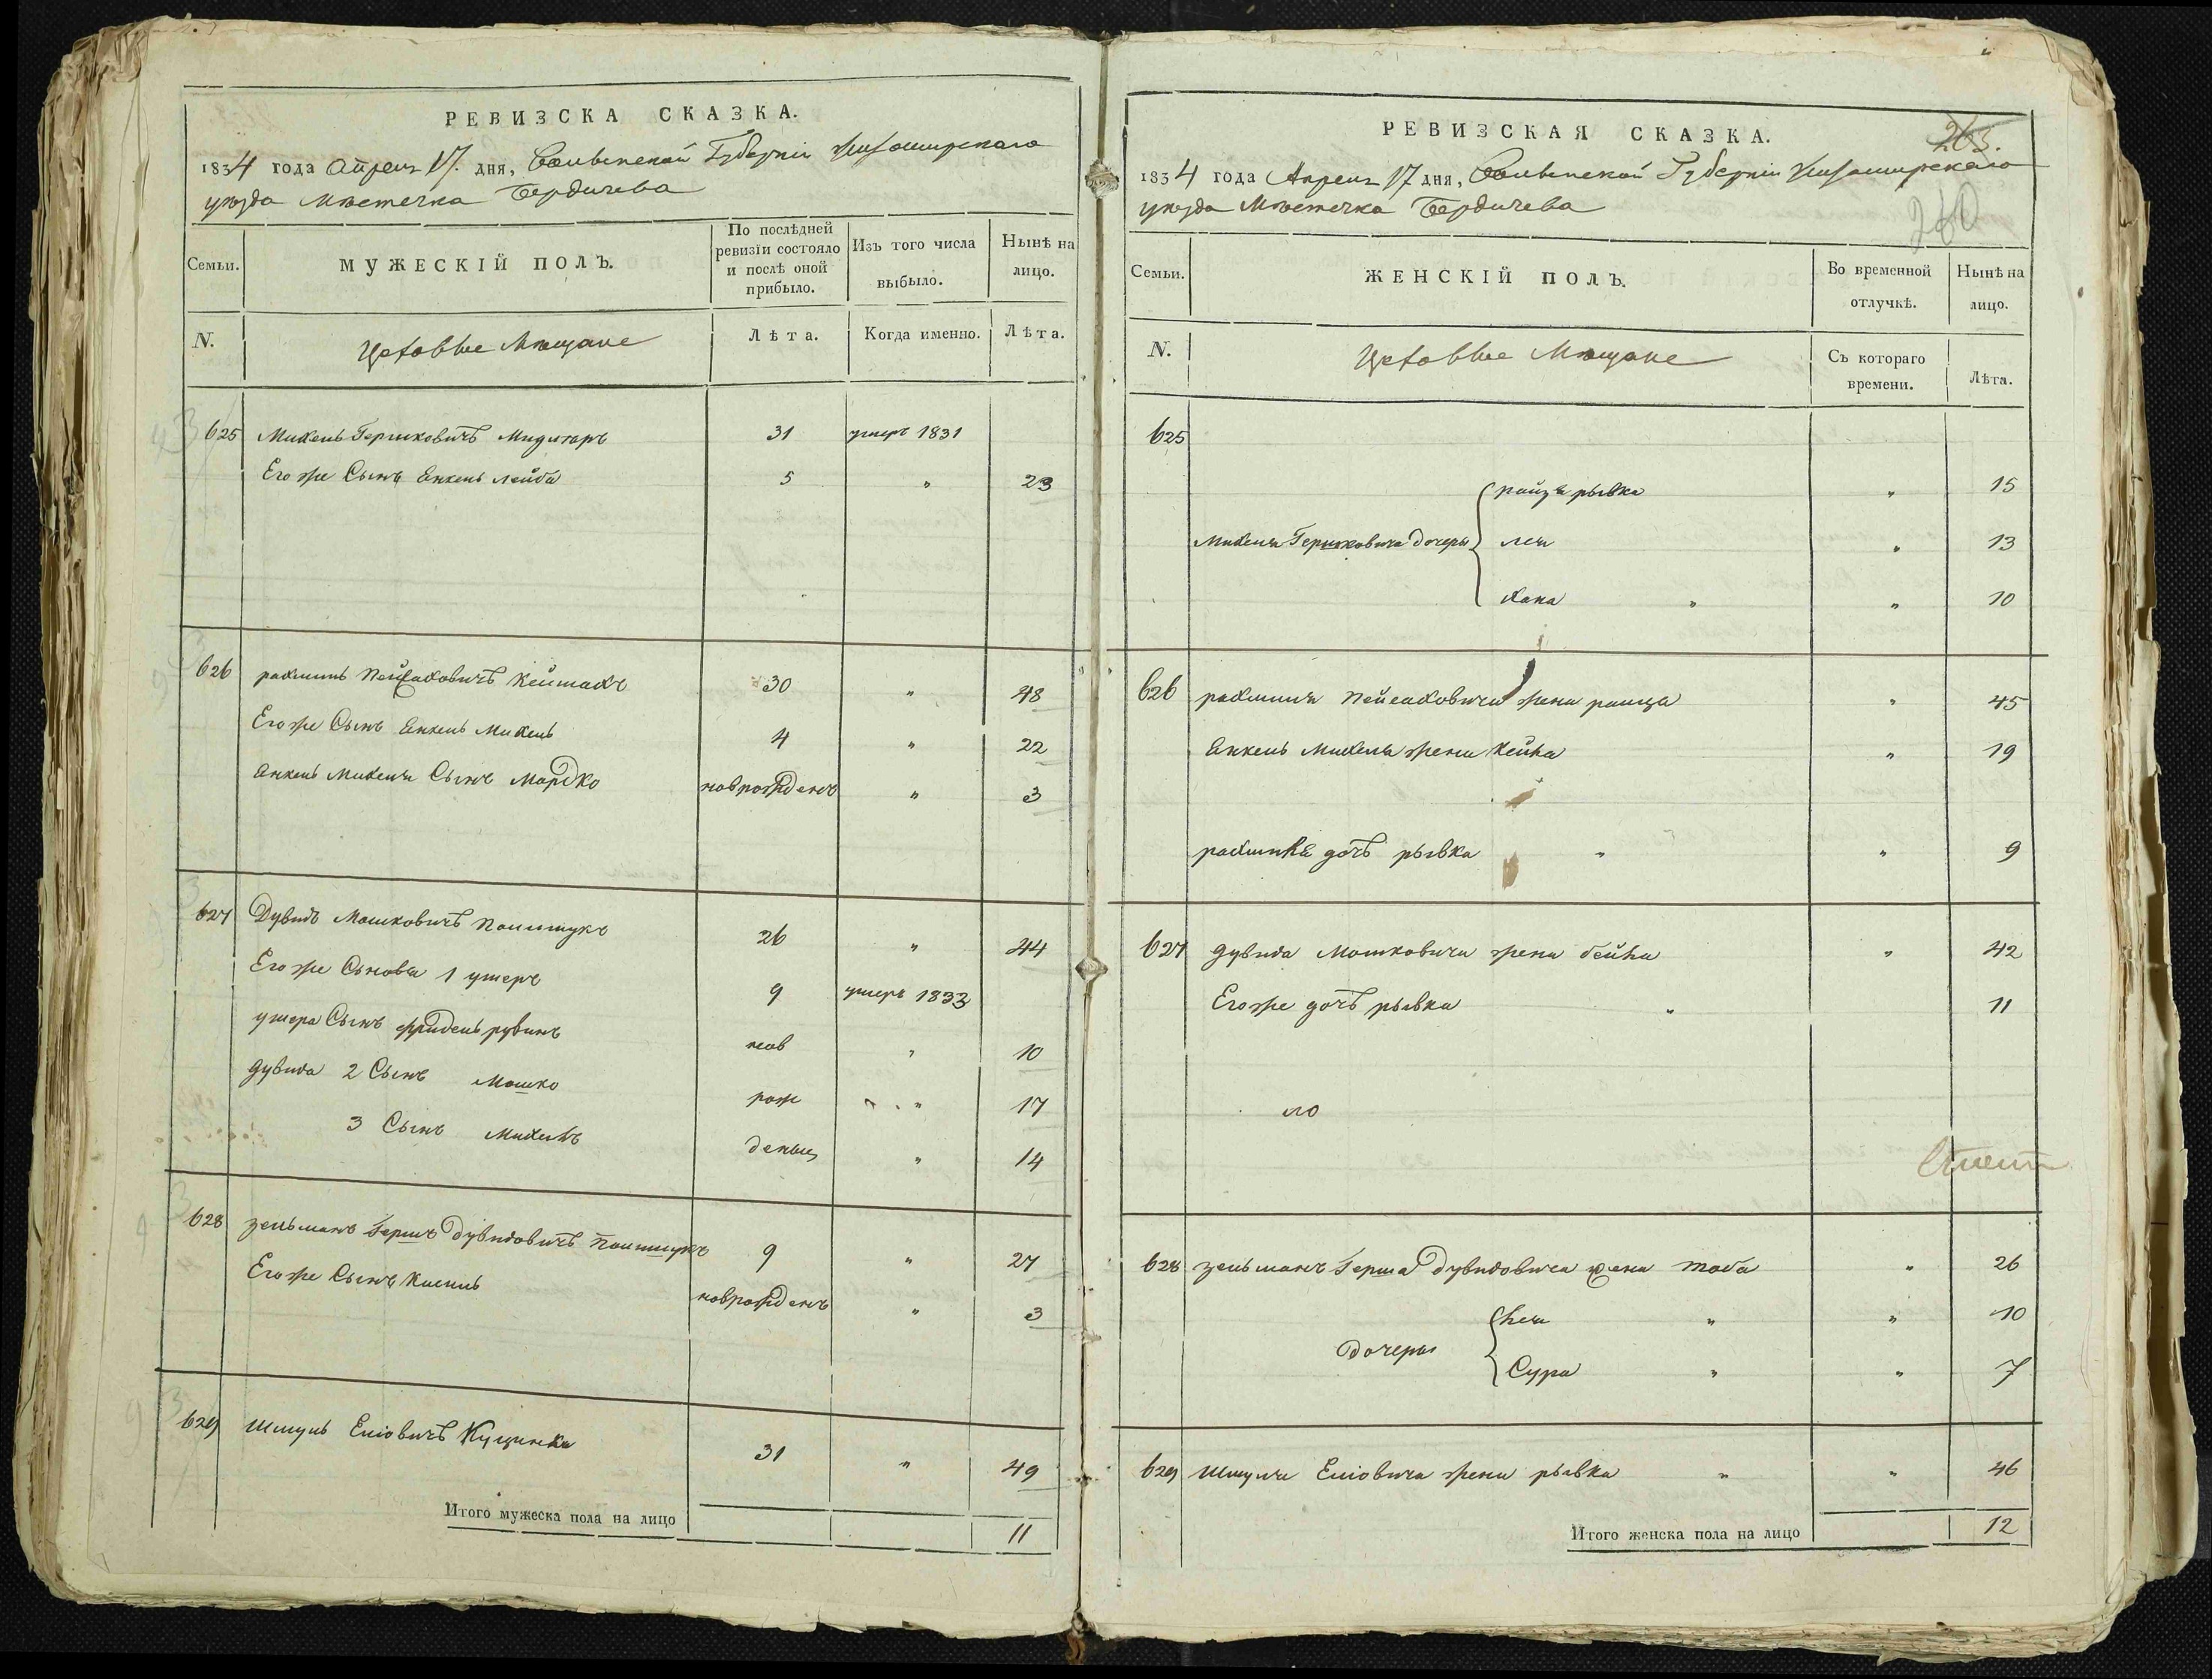 РЕВИЗСКА СКАЗКА.
1834 года Апреля 17. дня, Волынской Губерніи Житомирскаго
уѣзда Мѣстечка Бердичева
Семьи.
МУЖЕСКІЙ ПОЛЪ.
По послѣдней ревизіи состояло и послѣ оной прибыло.
Изъ того числа выбыло.
Нынѣ на лицо.
N.
Цеховые Мѣщане
Лѣта.
Когда именно.
Лѣта.
625 Михель Гершковичъ 31 умеръ 1831
Его же Сынъ Янкель Лейба 5 " 23
626 рахмиль Пейсаховичъ 30 " 48
Его же Сынъ Янкель Михель 4 " 22
Янкель Михеля Сынъ Мордко новрожденъ " 3
627 Дувидъ Мошковичъ Полищукъ 26 " 44
Его же Сыновья 1 умеръ 9 умеръ 1833
умера Сынъ фридель рувинъ нов " 10
дувида 2 Сынъ Мошко рож " " 17
3 Сынъ Михель денны " 14
628 зельманъ Гершъ Дувидовичъ Полищукъ 9 " 27
Его же Сынъ Касиль новрожденъ " 3
629 Шмуль Еліовичъ 31 " 49
Итого мужеска пола на лицо 11
РЕВИЗСКАЯ СКАЗКА.
263.
1834 года Апреля 17 дня, Волынской Губерніи Житомирскаго
уѣзда Мѣстечка Бердичева
260
Семьи.
ЖЕНСКІЙ ПОЛЪ.
Во временной отлучкѣ.
Нынѣ на лицо.
N.
Цеховые Мѣщане
Съ котораго времени.
Лѣта.
625
райзя рывка " 15
Михеля Гершковича дочеры лея " 13
хана " " 10
626 рахмиля Пейсаховича жена раица " 45
Янкель Михеля жена хейна " 19
рахмиля дочъ рывка " " 9
627 дувида Мошковича жена бейла " 42
Его же дочъ рывка " 11
ло
628 зельманъ Герша Дувидовича жена таба " 26
дочеры
лея " " 10
Сура " " 7
629 Шмуля Еліовича жена рывка " " 46
Итого женска пола на лицо 12